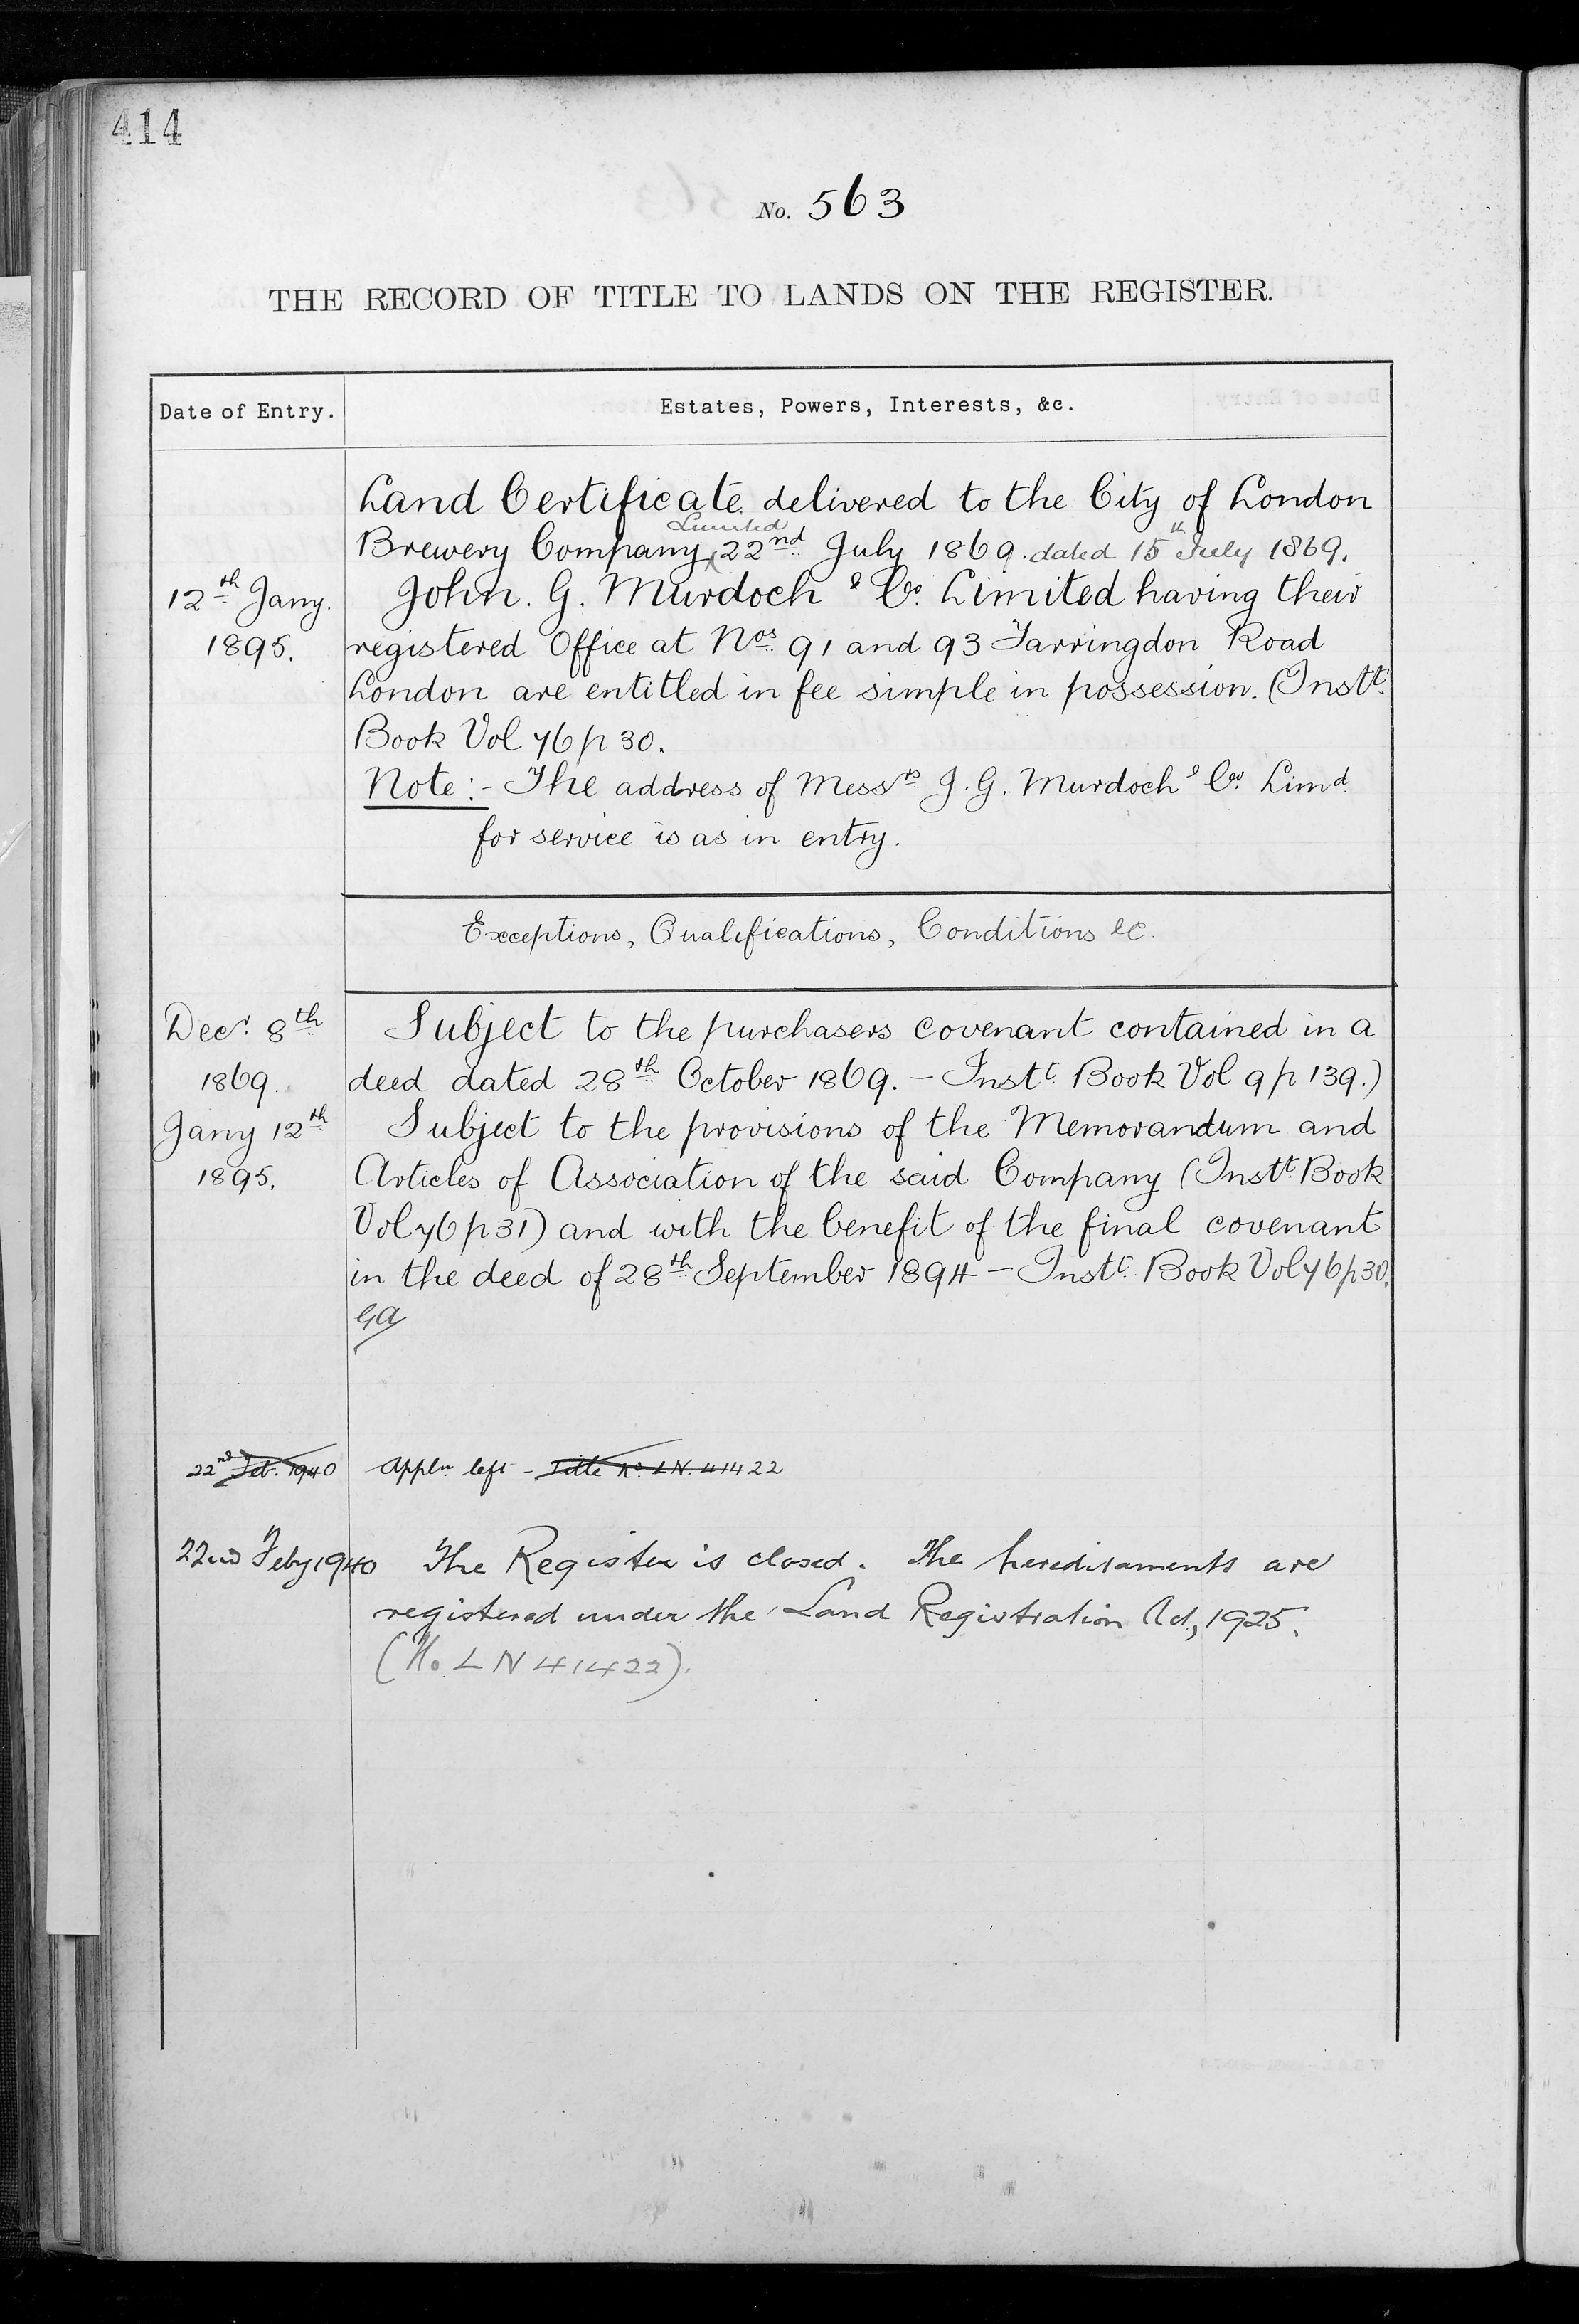 414
No. 563
THE RECORD OF TITLE TO LANDS ON THE REGISTER.
Date of Entry.
Estates, Powers, Interests, &c.
Land Certificate delivered to the City of London
Limited
Brewery Company, 22nd July 1869. dated 15th July 1869.
12th Jany. John. G. Murdoch & Co. Limited having their
1895. registered Office at Nos. 91 and 93 Farringdon Road
London are entitled in fee simple in possession. (Instt.
Book Vol 76 p 30.
Note:- The address of Messrs. J. G. Murdoch & Co. Limd.
for service is as in entry.
Exceptions, Qualifications, Conditions &c.
Decr. 8th Subject to the purchasers covenant contained in a
1869. deed dated 28th October 1869. - Instt. Book Vol 9 p 139.)
Jany 12th Subject to the provisions of the Memorandum and
1895. Articles of Association of the said Company (Instt. Book
Vol 76 p 31) and with the benefit of the final covenant
in the deed of 28th September 1894 - Instt. Book Vol 76 p 30.
22nd Feb. 1940 Appln. left - Title No. LN. 41422
22nd Feby 1940 The Register is closed. The hereditaments are
registered under the Land Registration Act, 1925.
(No. LN 41422).